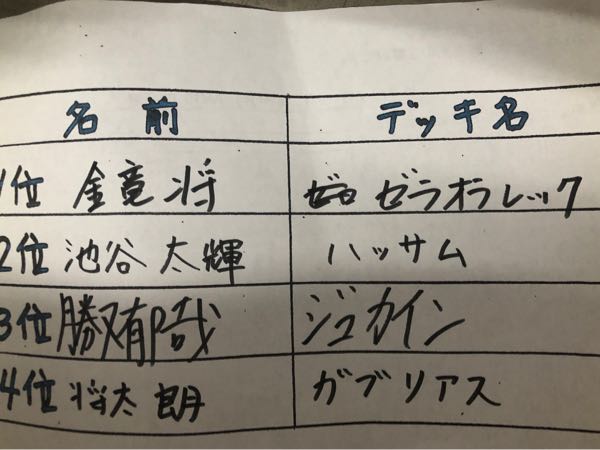 名前 デッキ名
1位 金竜将 ゼラオラレック
2位 池谷 太輝 ハッサム
3位 勝又郁哉 ジュカイン
4位 将太朗 ガブリアス